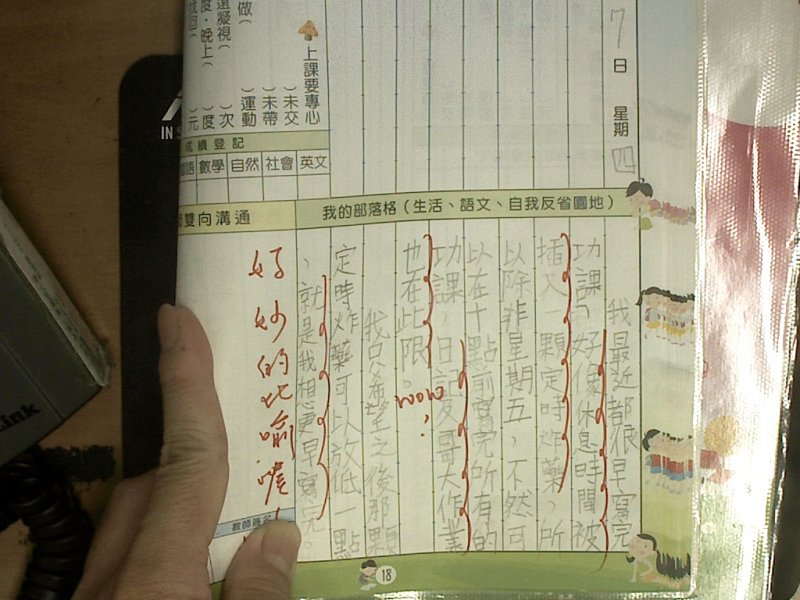 7日 星期四
上課要專心
）未交
）未帶
做（ ）運動
遠凝視（ ）次
度，晚上（ ）度
）元
成績登記
語 數學 自然 社會 英文
我的部落格（生活、語文、自我反省園地）
我最近都很早寫完
功課，好像休息時間被
插入一顆定時炸藥，所
以除非星期五，不然可
以在十點前寫完所有的
功課，日記 大作業
也在此限。
wow!
我只希望之後那顆
定時炸藥可以放低一點
，就是我想更早寫完。
雙向溝通
好妙的比喻喔！
教師簽名
18
Link